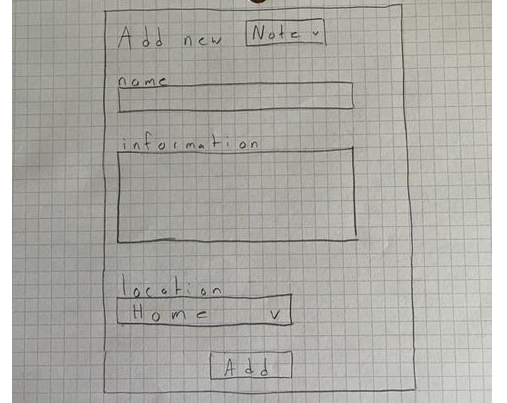 Add new Note
name
information
location
Home
Add